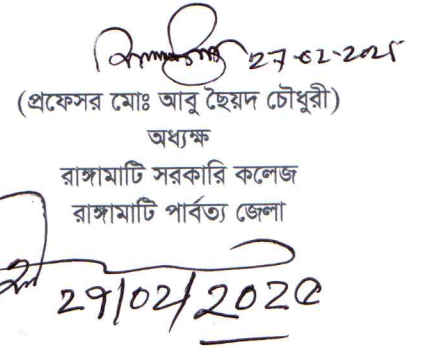 27-02-2025
(প্রফেসর মোঃ আবু ছৈয়দ চৌধুরী)
অধ্যক্ষ
রাঙ্গামাটি সরকারি কলেজ
রাঙ্গামাটি পার্বত্য জেলা
২৭/০২/২০২৫